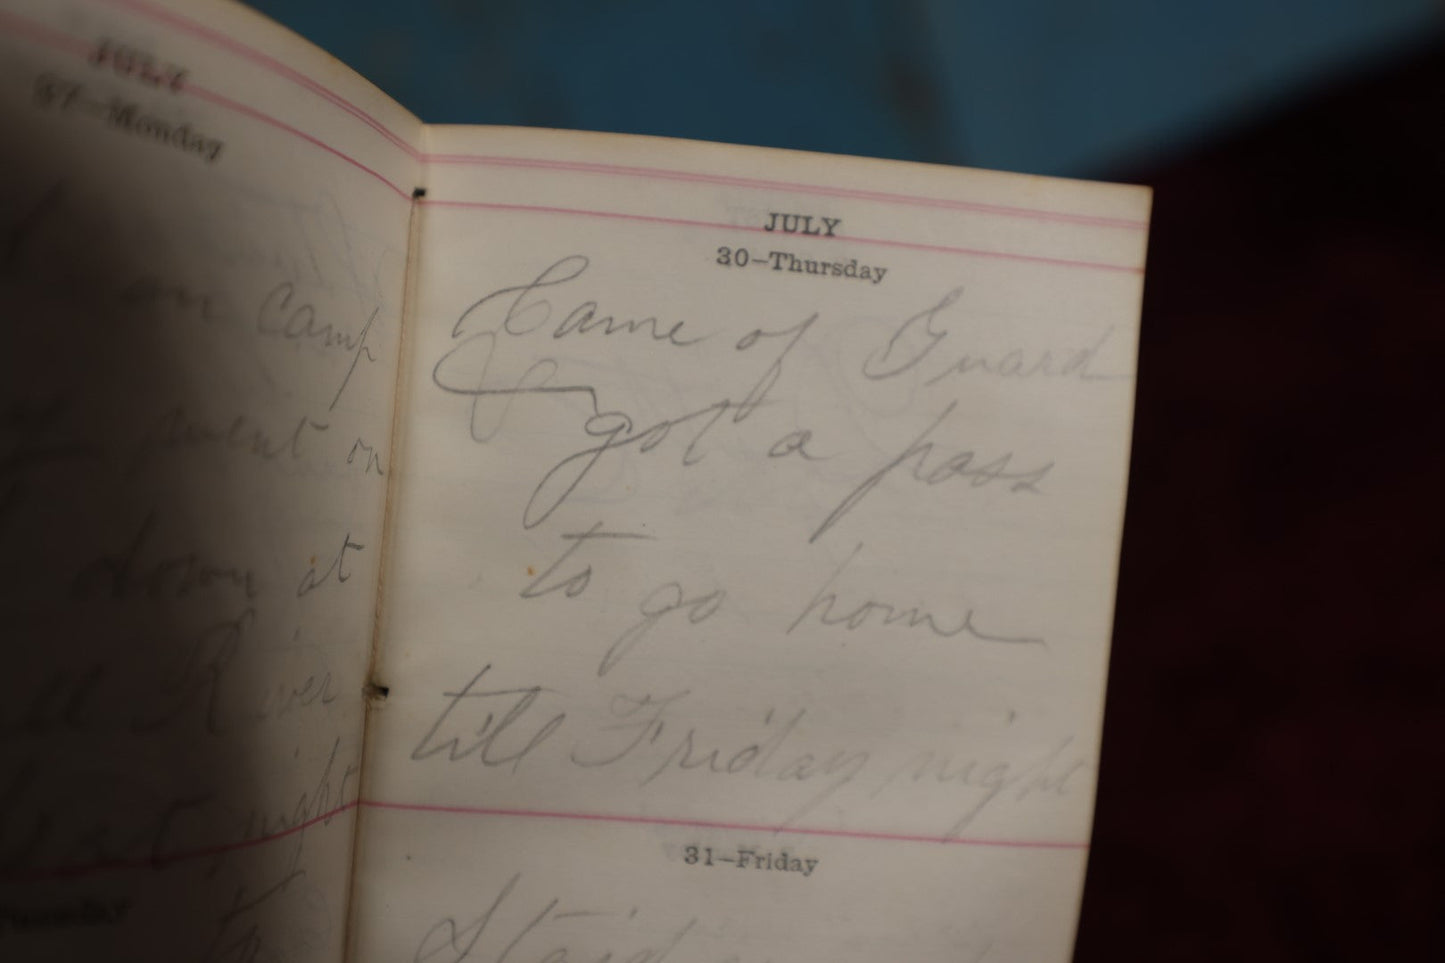 JULY
27—Monday
in camp
went on
down at
River
last night
Tuesday
to
JULY
30—Thursday
Came of Guard
got a pass
to go home
till Friday night
31—Friday
Staid